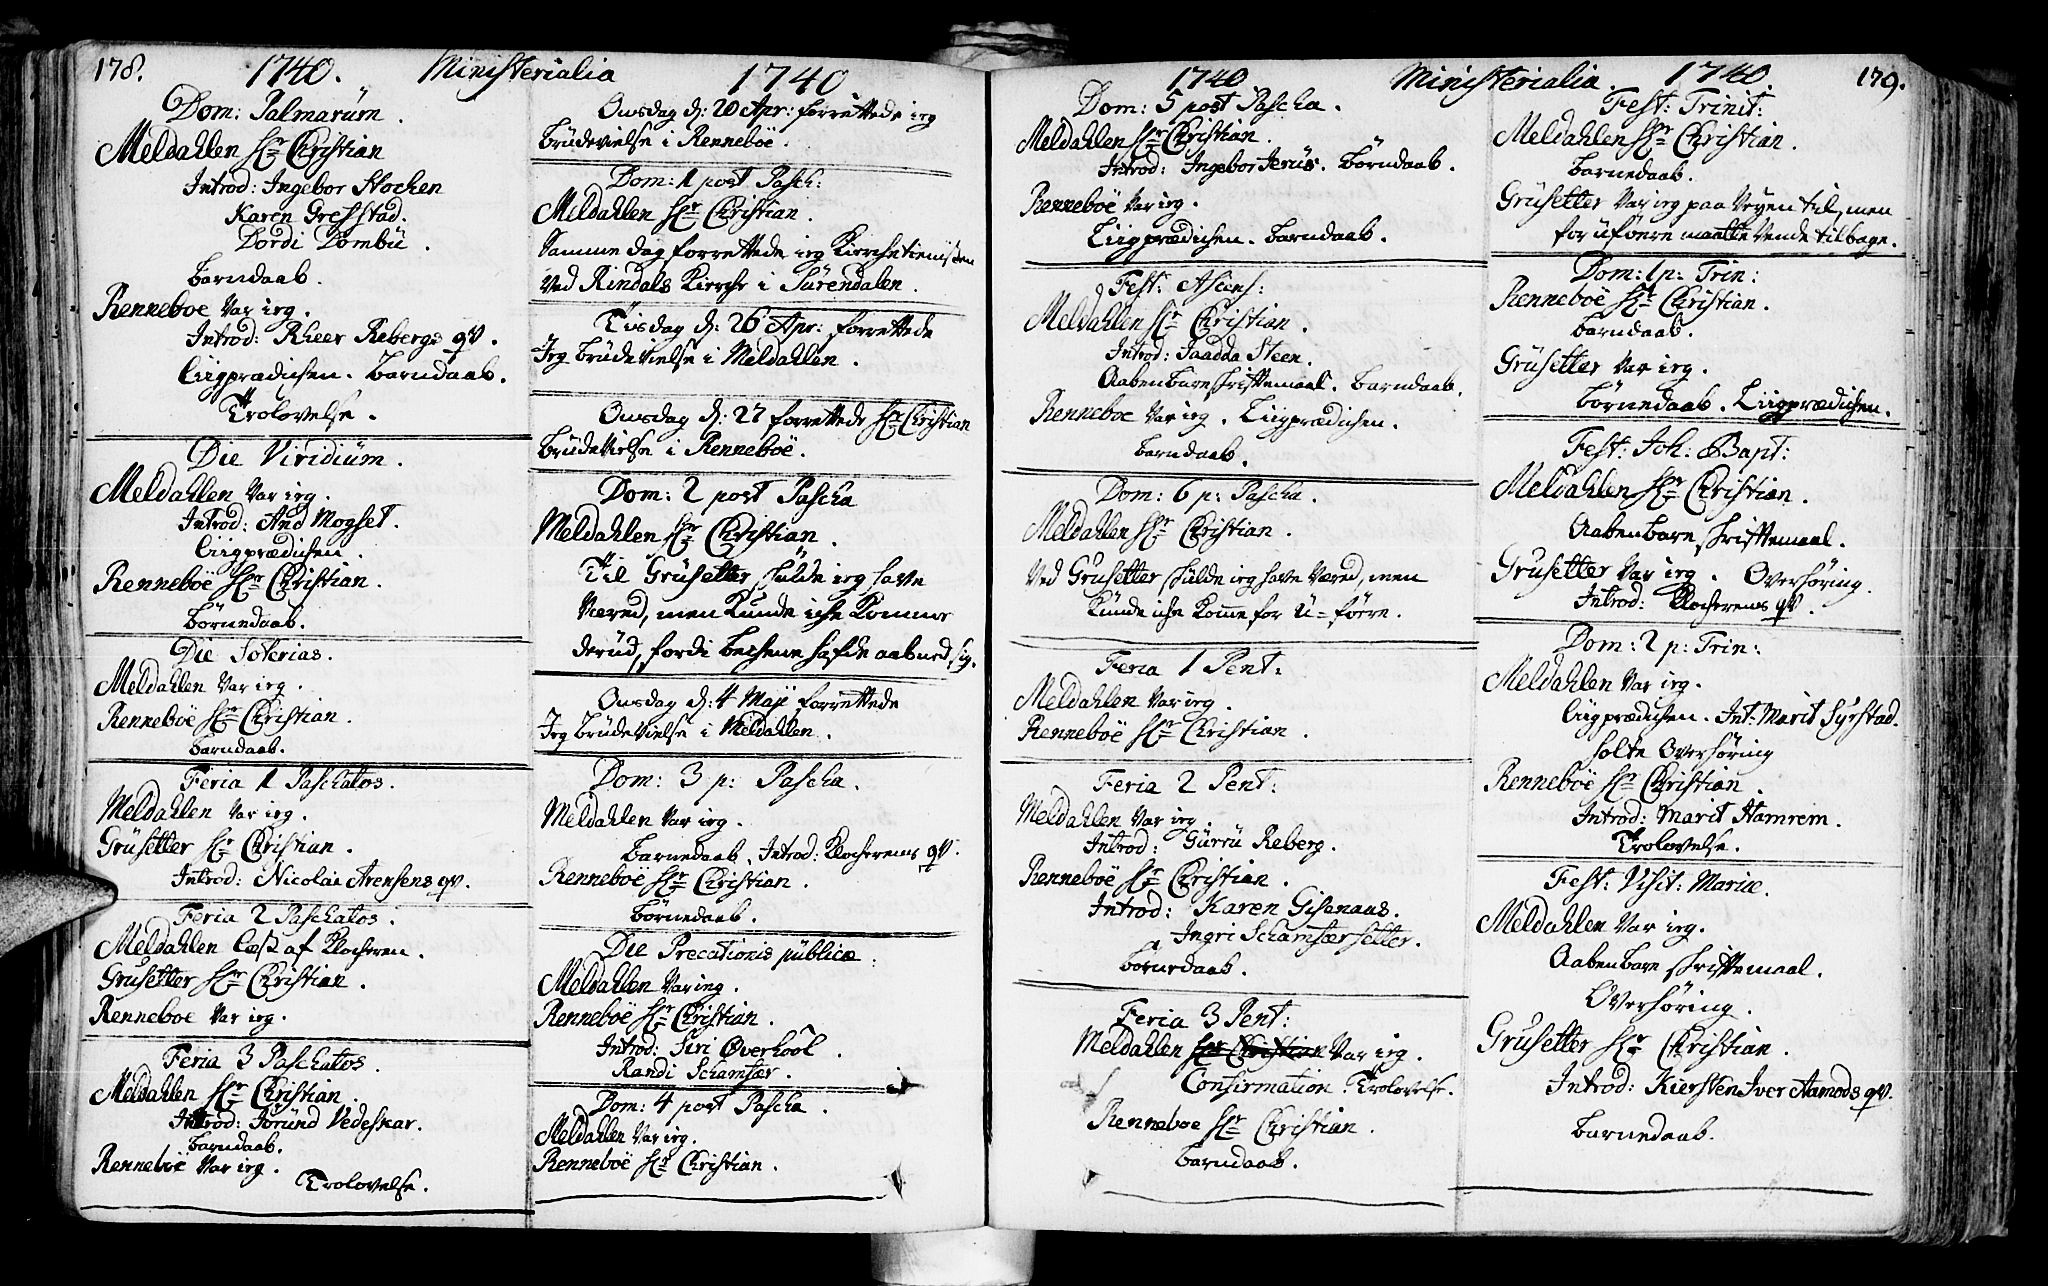 178.
1740. Ministerialia 1740
Dom: Palmarum.
Meldahlen Hr Christian
Introd: Ingebor Stochen
Karen Gresstad.
Dordi Dombü.
barndaab.
Renneboe var ieg.
Introd: Rheer Rebergs qv.
Liigprædichen. barndaab.
Trolovelse.
Die Viridium.
Meldahlen var ieg.
Introd: And Mogset.
Liigprædichen.
Renneboe Hr Christian.
börnedaab.
Die Soterias.
Meldahlen var ieg.
Renneboe Hr Christian.
barndaab.
Feria 1 Paschatos.
Meldahlen var ieg.
Grüsetter Hr Christian.
Introd: Nicolai Arensens qv.
Feria 2 Paschatos.
Meldahlen læst af Klocheren.
Grusetter Hr Christian.
Renneboe var ieg.
Feria 3 Paschatos.
Meldahlen Hr Christian.
Introd: Jorund Vedeskar.
barndaab.
Renneboe var ieg.
Trolovelse.
Onsdag d: 20 Apr: forrettede ieg
brüdevielse i Renneböe.
Dom: 1 post Pasch:
Meldahlen Hr Christian.
Samme dag forrettede ieg Kirchetienisten
ved Rindals Kirche i Sürendalen.
Tüsdag d: 26 Apr: forrettede
Jeg brüdevielse i Meldahlen.
Onsdag d: 27 forrettede Hr Christian
brüdevielse i Renneböe.
Dom: 2 post Pascha
Meldahlen Hr Christian.
Til Grüsetter skulde ieg have
været, men kunde iche komme
derüd, fordi bechene hafde aabned sig.
Onsdag d: 4 Maji forrettede
Jeg brüdevielse i Meldahlen.
Dom: 3 p: Pascha.
Meldahlen var ieg.
barnedaab. Introd: Klocherens qv.
Renneböe Hr Christian.
börnedaab.
Die Precationis publicæ.
Meldahlen var ieg.
Renneböe Hr Christian.
Introd: Siri Øverhool.
Randi Schamsær.
Dom: 4 post Pascha.
Meldahlen var ieg.
Renneböe Hr Christian.
1740 Ministerialia. 1740. 179.
Dom: 5 post Pascha.
Meldahlen Hr Christian.
Introd: Ingebor Jerüs. börndaab.
Renneböe var ieg.
Liigprædichen. barndaab.
Fest: Ascens:
Meldahlen Hr Christian.
Introd: Jaadda Steen.
Aabenbare skriftemaal. barndaab.
Renneboe var ieg. Liigprædichen.
barndaab.
Dom: 6 p: Pascha.
Meldahlen Hr Christian.
Ved Grusetter skülde ieg have været, men
kunde iche kome for u=förre.
Feria 1 Pent:
Meldahlen var ieg.
Renneböe Hr Christian.
Feria 2 Pent:
Meldahlen var ieg.
Introd: Gurrü Reberg.
Renneböe Hr Christian.
Introd: Karen Gisenaas.
Ingri Schamsærsetter.
börnedaab.
Feria 3 Pent:
Meldahlen Hr Christian var ieg.
Confirmation Trolovelse.
Renneboe Hr Christian.
barndaab.
Fest: Trinit:
Meldahlen Hr Christian.
barnedaab.
Grüsetter var ieg paa veyen til, men
for uföere maatte vende tilbage.
Dom: 1 p: Trin:
Renneböe Hr Christian.
barndaab.
Grüsetter var ieg.
börnedaab. Liigprædichen.
Fest: Joh: Bapt:
Meldahlen Hr Christian.
Aabenbare skriftemaal.
Grusetter var ieg. Overhøring.
Introd: Klocherens qv.
Dom: 2 p: Trin:
Meldahlen var ieg.
Liigprædichen. Int: Marit Syrstad.
holte Overhøring
Renneböe Hr Christian.
Introd: Marit Hamrem.
Trolovelse.
Fest: Visit: Mariæ.
Meldahlen var ieg.
Aabenbare skriftemaal.
Overhøring.
Grusetter Hr Christian.
Introd: Kiersten Iver Aamods qv.
barnedaab.